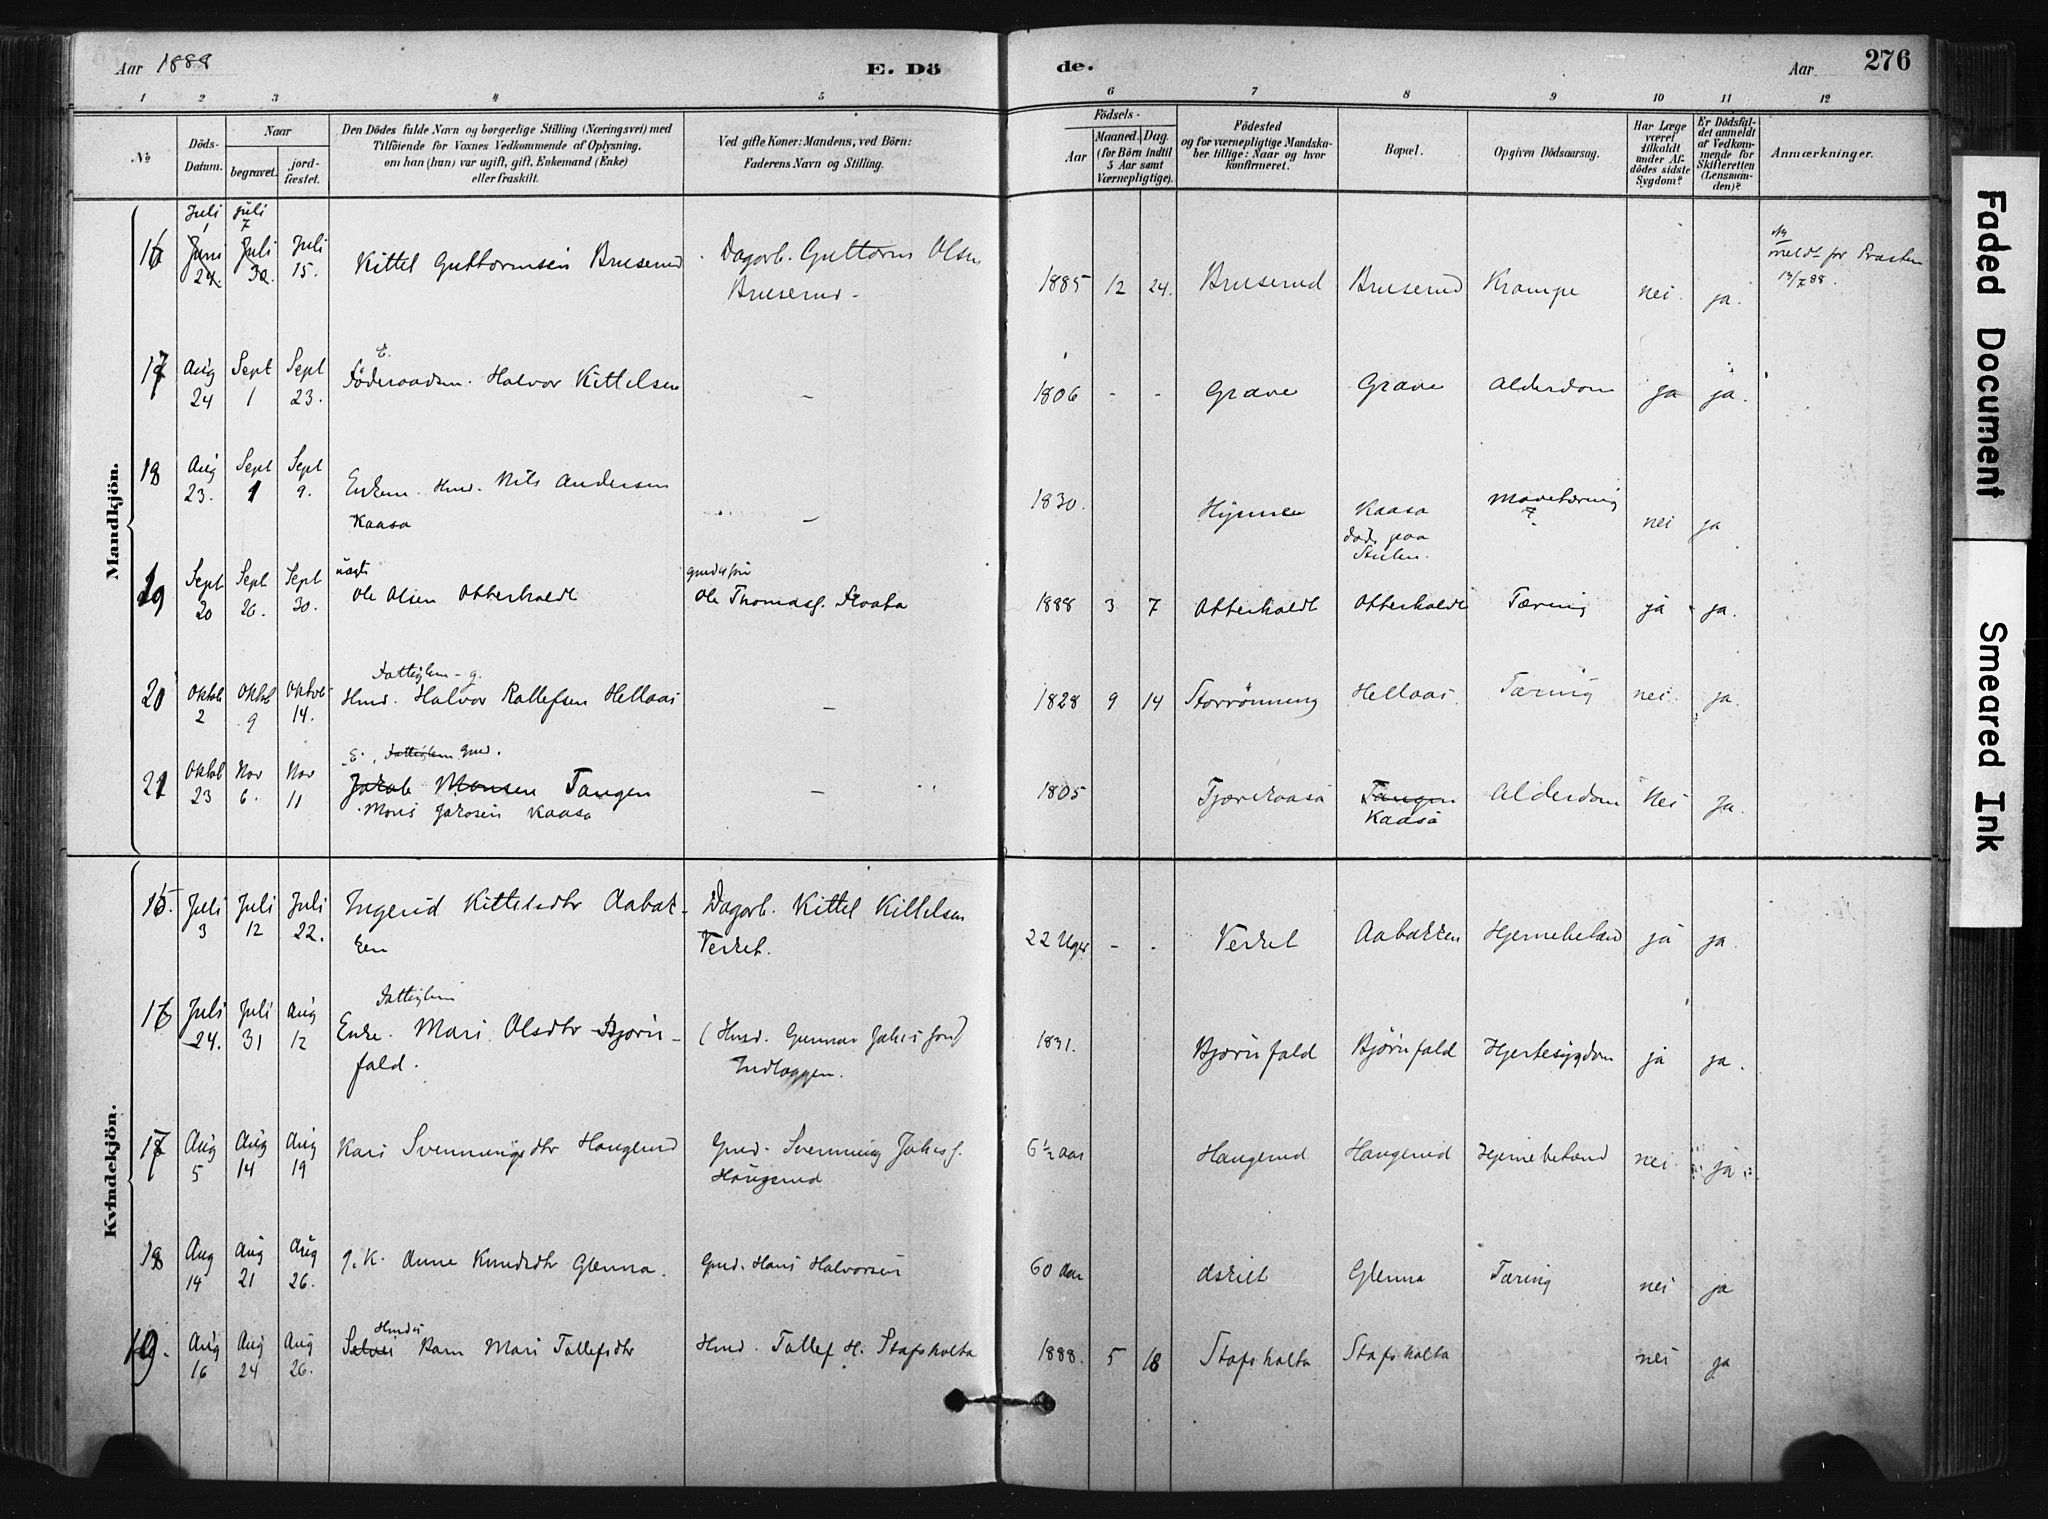 Aar 1888
E. Dö
de.
Aar
276
1 2 3 4 5 6 7 8 9 10 11 12
No
Döds-
Datum.
Naar
begravet.
jord-
fæstet.
Den Dödes fulde Navn og borgerlige Stilling (Næringsvei) med
Tilföiende for Voxnes Vedkommende af Oplysning,
om han (hun) var ugift, gift, Enkemand (Enke)
eller fraskilt.
Ved gifte Koner: Mandens, ved Börn:
Faderens Navn og Stilling.
Födsels-
Aar
Maaned. Dag.
(for Börn indtil
5 Aar samt
Værnepligtige).
Födested
og for værnepligtige Mandska-
ber tillige: Naar og hvor
konfirmeret.
Bopæl.
Opgiven Dödsaarsag.
Har Læge
været
tilkaldt
under Af-
dödes sidste
Sygdom?
Er Dödsfal-
det anmeldt
af Vedkom-
mende for
Skifteretten
(Lensman-
den)?
Anmærkninger.
Mandkjön.
16 Juli 1 Juni 24. Juli 7 Juli 30. Juli 15. Kittel Guttormsen Bruserud Dagarb. Guttorm Olsen
Bruserud 1885 12 24. Bruserud Bruserud Krampe nei. ja. meldt for Præsten
13/7 88.
17 Aug 24 Sept 1 Sept 23. E.
Föderaadsm. Halvor Kittelsen - 1806 - - Grave Grave Alderdom ja ja.
18 Aug 23. Sept 1 Sept 9. Enkem. Hmd. Nils Andersen
Kaasa - 1830. Kaasa
död paa Mavetæring
? nei ja
19 Sept 20 Sept 26. Sept 30. uægte
Ole Olsen Otterholdt Ole Thomass. 1888 3 7 Otterholdt Otterholdt Tæring ja ja.
20 Oktob 2 Oktob 9 Oktob 14. Fattiglem - g.
Hmd. Halvor Rollefsen Hellaas - 1828 9 14 Storrönning Hellaas Tæring nei ja.
21 Oktob 23 Nov 6. Nov 11 E. Fattiglem Gmd.
Jakob Monsen Tangen
Mons Jakosen Kaasa - 1805 Tjærekaasa Tangen
Kaasa Alderdom Nei Ja.
Kvindekjön.
15. Juli 3 Juli 12 Juli 22. Ingerid Kittelsdtr Aabak-
ken Dagarb. Kittel Kittelsen
Verket. 22 Uger - - Verket Aabakken Hjernebetænd ja ja.
16 Juli 24. Juli 31 Aug 12 Fattiglem
Enke. Mari Olsdtr Bjørn-
fald. (Hmd. Gunnar Jakis
1831. Bjørnfald Bjørnfald Hjertesygdom ja ja.
17 Aug 5 Aug 14 Aug 19 Kari Svenningsdtr Haugerud Gmd. Svenning Jakis.
Haugerud 6 1/2 aar Haugerud Haugerud Hjernebetænd nei. ja
18 Aug 14 Aug 21 Aug 26. g. K. Anne Knudsdtr Glenna. Gmd. Hans Halvorsen 60 Aar Glenna Tæring nei ja
19. Aug 16 Aug 24 Aug 26. Hmds
Barn Mari Tollefsdtr Hmd. Tollef H. Stafsholta 1888. 5 18 Stafsholta Stafsholta nei ja
Faded Document
Smeared Ink